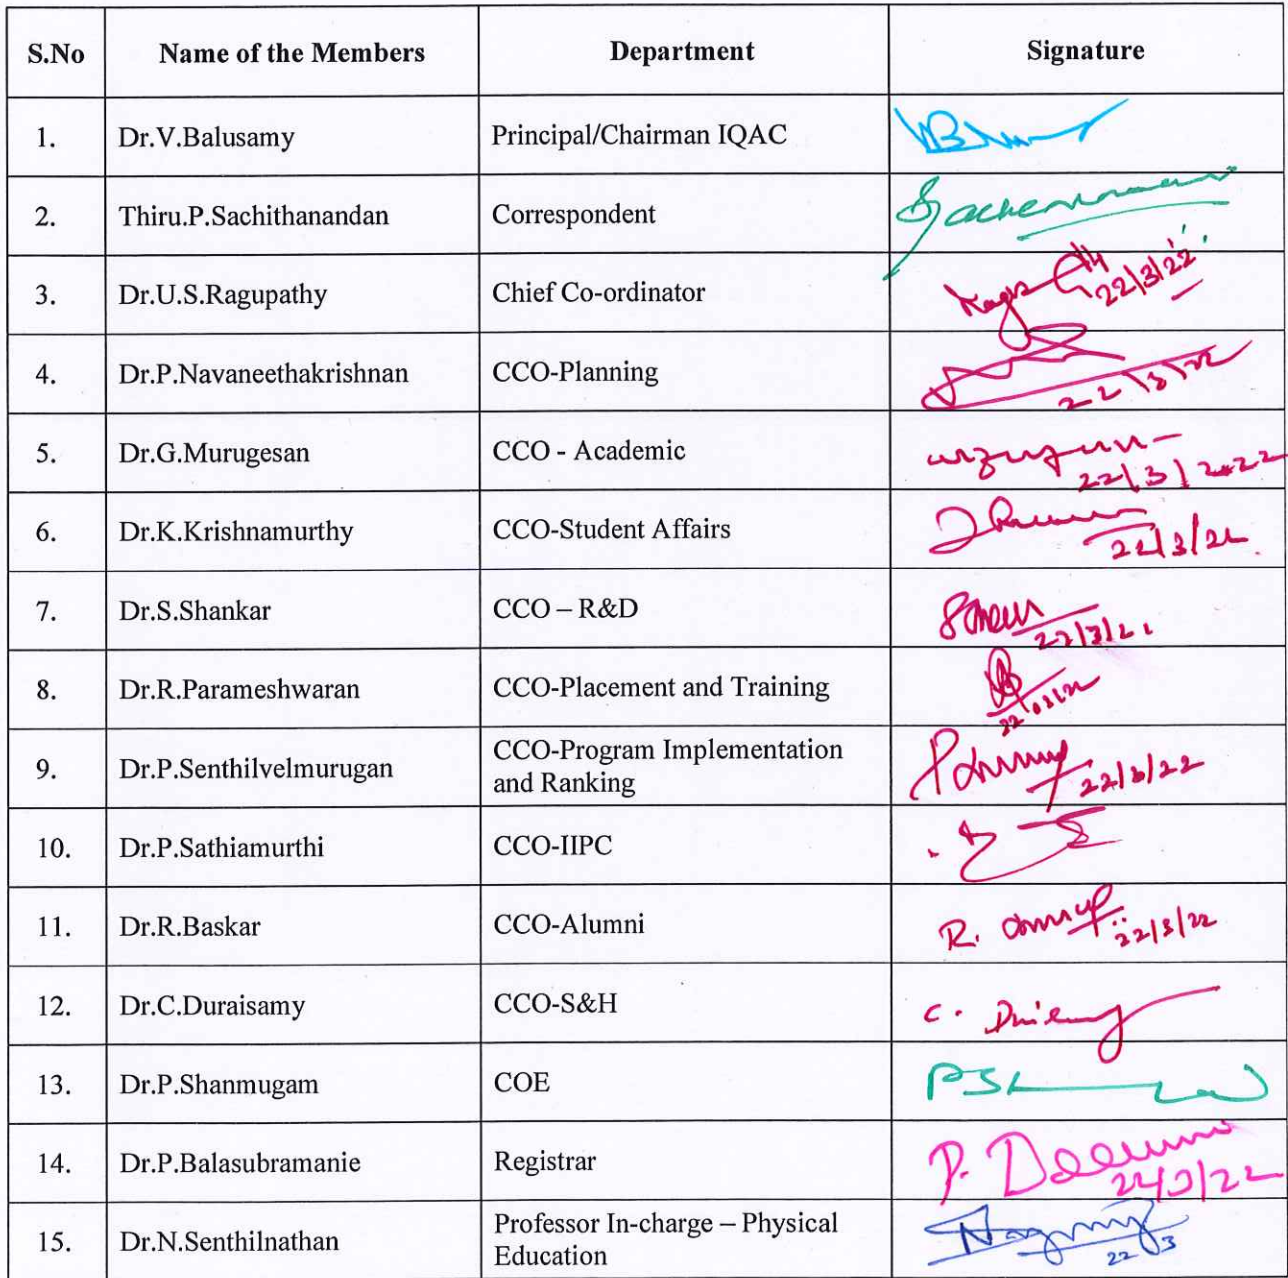 S.No Name of the Members Department Signature
1. Dr.V.Balusamy Principal/Chairman IQAC
2. Thiru.P.Sachithanandan Correspondent
3. Dr.U.S.Ragupathy Chief Co-ordinator 22/3/22
4. Dr.P.Navaneethakrishnan CCO-Planning 22/3/22
5. Dr.G.Murugesan CCO - Academic 22/3/2022
6. Dr.K.Krishnamurthy CCO-Student Affairs 22/3/22
7. Dr.S.Shankar CCO – R&D
8. Dr.R.Parameshwaran CCO-Placement and Training
9. Dr.P.Senthilvelmurugan CCO-Program Implementation
and Ranking 22/3/22
10. Dr.P.Sathiamurthi CCO-IIPC
11. Dr.R.Baskar CCO-Alumni R. 22/3/22
12. Dr.C.Duraisamy CCO-S&H C.
13. Dr.P.Shanmugam COE
14. Dr.P.Balasubramanie Registrar P. 22/3/22
15. Dr.N.Senthilnathan Professor In-charge – Physical
Education 22/3